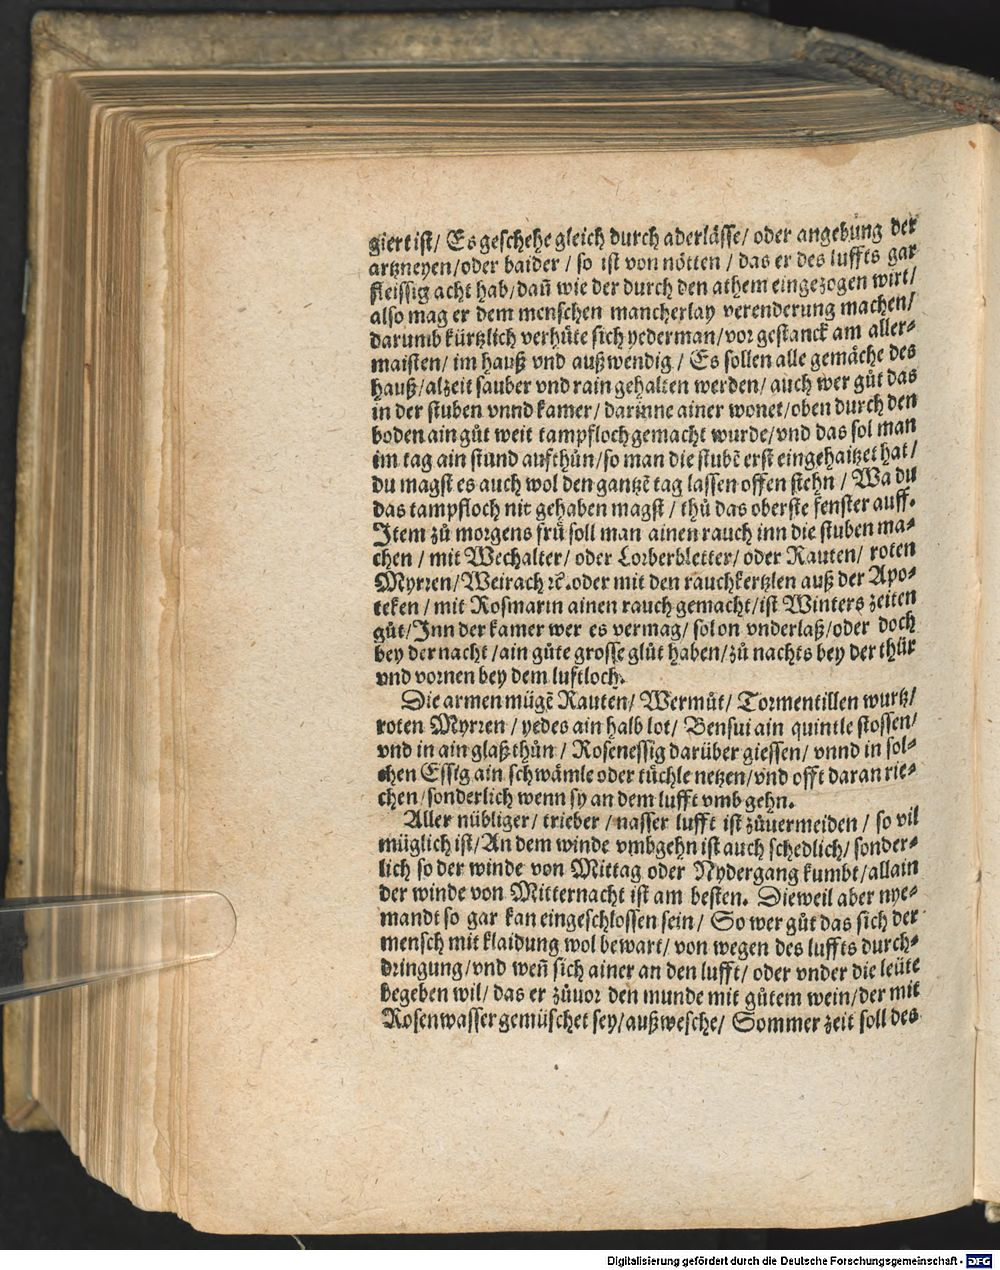 giert ist/ Es geschehe gleich durch aderlässe/ oder angebung der
artzneyen/oder baider / so ist von nötten / das er des luffts gar
fleissig acht hab/dañ wie der durch den athem eingezogen wirt/
also mag er dem menschen mancherlay verenderung machen/
darumb kürtzlich verhüte sich yederman/vor gestanck am aller⸗
maisten/ im hauß vnd außwendig / Es sollen alle gemäche des
hauß/alzeit sauber vnd rain gehalten werden/ auch wer gůt das
in der stuben vnnd kamer/ darinne ainer wonet/oben durch den
boden ain gůt weit tampfloch gemacht wurde/vnd das sol man
im tag ain stund aufthůn/so man die stubē erst eingehaitzet hat/
du magst es auch wol den gantzē tag lassen offen stehn / Wa du
das tampfloch nit gehaben magst / thů das oberste fenster auff.
Item zů morgens frů soll man ainen rauch inn die stuben ma⸗
chen / mit Wechalter/ oder Lorberbletter/ oder Rauten/ roten
Myrren/Weirach ꝛc̃.oder mit den rauchkertzlen auß der Apo⸗
teken / mit Rosmarin ainen rauch gemacht/ist Winters zeiten
gůt/Inn der kamer wer es vermag/ sol on vnderlaß/oder doch
bey der nacht /ain gůte grosse glůt haben/zů nachts bey der thür
vnd vornen bey dem luftloch.
Die armen mügē Rauten/ Wermůt/ Tormentillen wurtz/
roten Myrren / yedes ain halb lot/ Bensui ain quintle stossen/
vnd in ain glaß thůn / Rosenessig darüber giessen/ vnnd in sol⸗
chen Essig ain schwämle oder tüchle netzen/vnd offt daran rie⸗
chen/sonderlich wenn sy an dem lufft vmb gehn.
Aller nübliger/ trieber / nasser lufft ist zůuermeiden / so vil
müglich ist/An dem winde vmbgehn ist auch schedlich/ sonder⸗
lich so der winde von Mittag oder Nydergang kumbt/allain
der winde von Mitternacht ist am besten. Dieweil aber nye⸗
mandt so gar kan eingeschlossen sein/ So wer gůt das sich der
mensch mit klaidung wol bewart/ von wegen des luffts durch⸗
dringung/vnd weñ sich ainer an den lufft/ oder vnder die leüte
begeben wil/ das er zůuor den munde mit gůtem wein/der mit
Rosenwasser gemüschet sey/außwesche/ Sommer zeit soll des
Digitalisierung gefördert durch die Deutsche Forschungsgemeinschaft - DFG